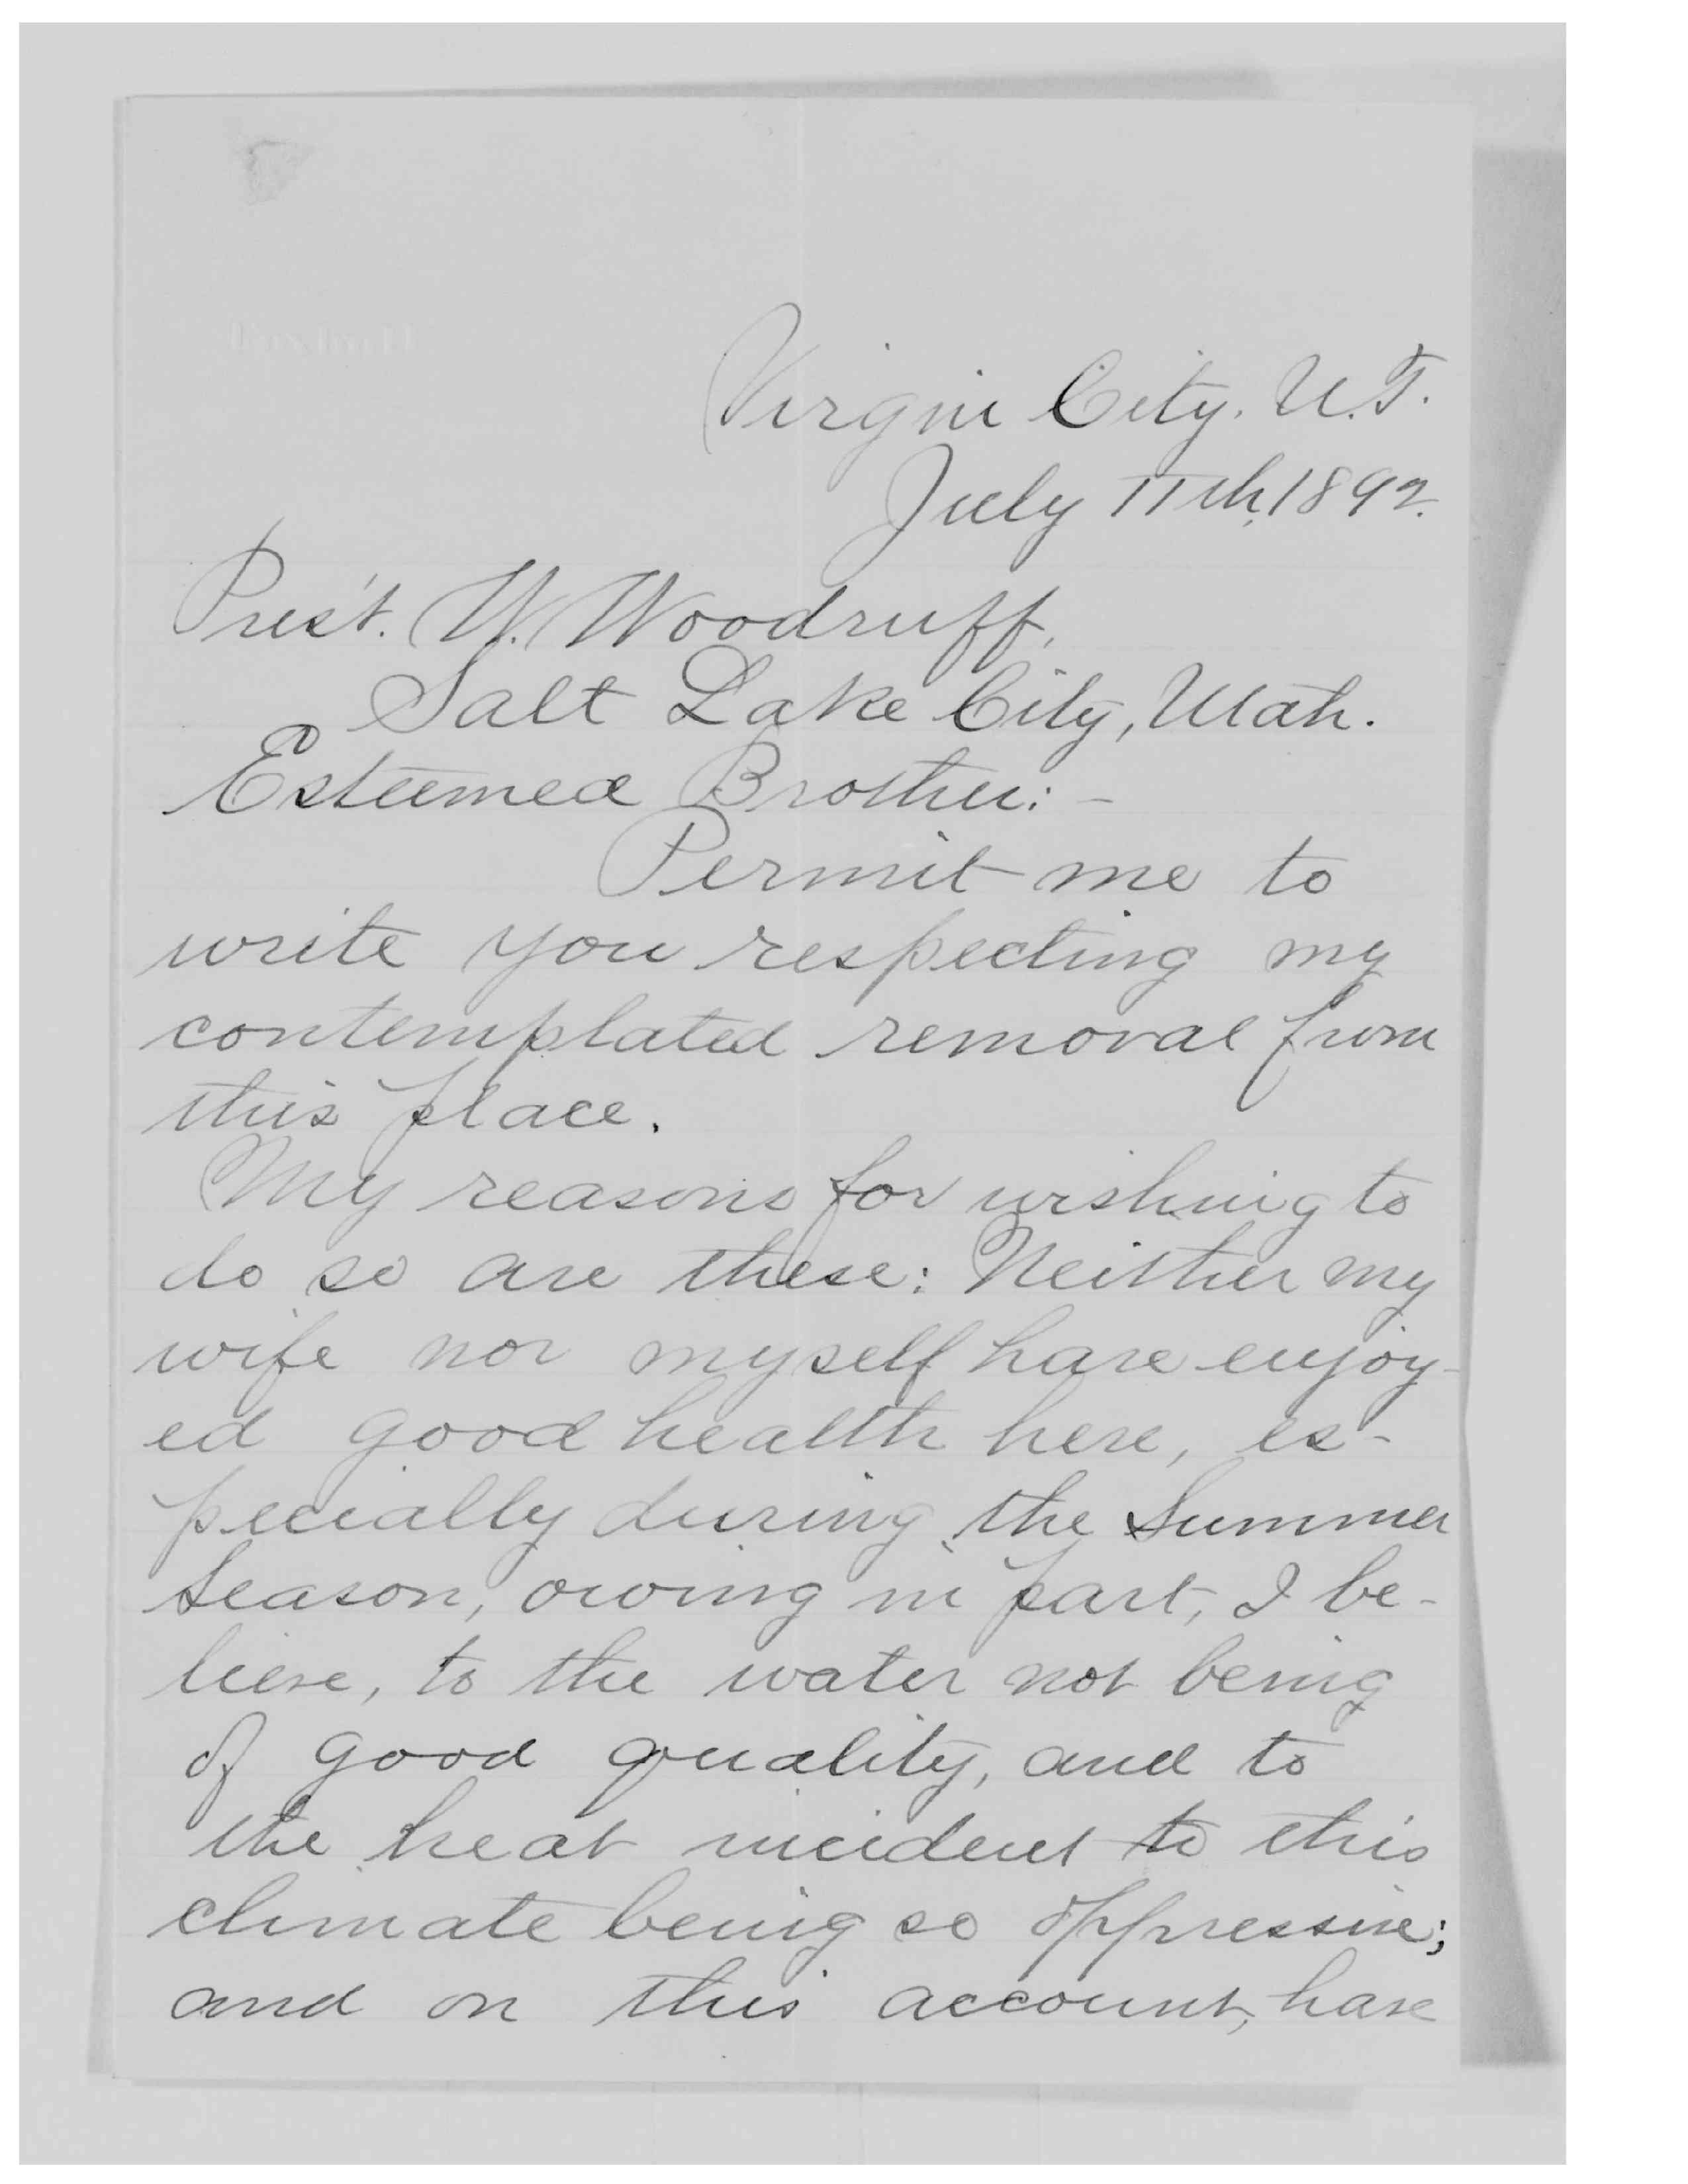 Virgin City. U.T.
July 11th, 1892.
Pres't. W. Woodruff,
Salt Lake City, Utah.
Esteemed Brother:-
Permit me to
write you respecting my
contemplated removal from
this place.
My reasons for wishing to
do so are these: Neither my
wife nor myself have enjoy-
ed good health here, es-
pecially during the Summer
Season, owing in part, I be-
lieve, to the water not being
of good quality, and to
the heat incident to this
climate being so oppressive;
and on this account, have